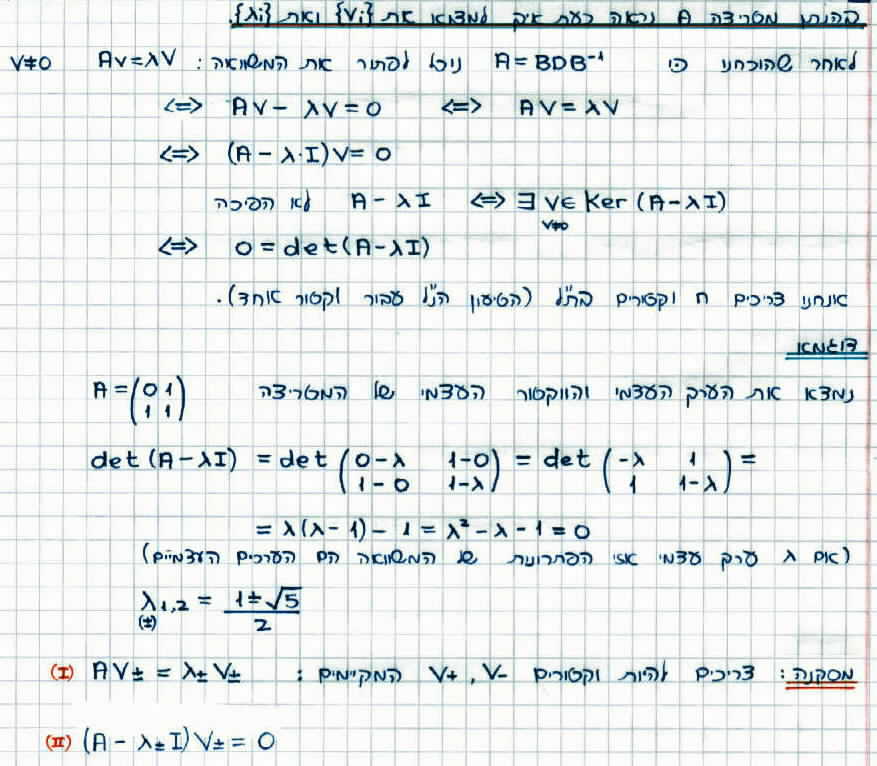 בהנתן מטריצה A נראה כעת איך למצוא את {Vi} ואת {λi}.
לאחר שהוכחנו כי A = BDB⁻¹ נוכל לפתור את המשוואה: AV = λV V≠0
<=> AV - λV = 0 <=> AV = λV
<=> (A - λ·I)V = 0
לא הפיכה A - λI <=> ∃ V∈ Ker (A-λI)
V≠0
<=> 0 = det(A-λI)
אנחנו צריכים n וקטורים בת"ל (הטיעון הנ"ל עבור וקטור אחד).
דוגמא
נמצא את הערק העצמי והווקטור העצמי של המטריצה A = (0 1
1 1)
det (A-λI) = det (0-λ 1-0) = det (-λ 1) =
(1-0 1-λ) (1 1-λ)
= λ(λ-1) - 1 = λ² - λ - 1 = 0
(אם λ ערק עצמי אזי הפתרונות של המשוואה הם הערכים העצמיים)
λ1,2 = 1±√5
(±) 2
מסקנה: צריכים להיות וקטורים V+, V- המקיימים: (I) AV± = λ± V±
(II) (A - λ± I) V± = 0